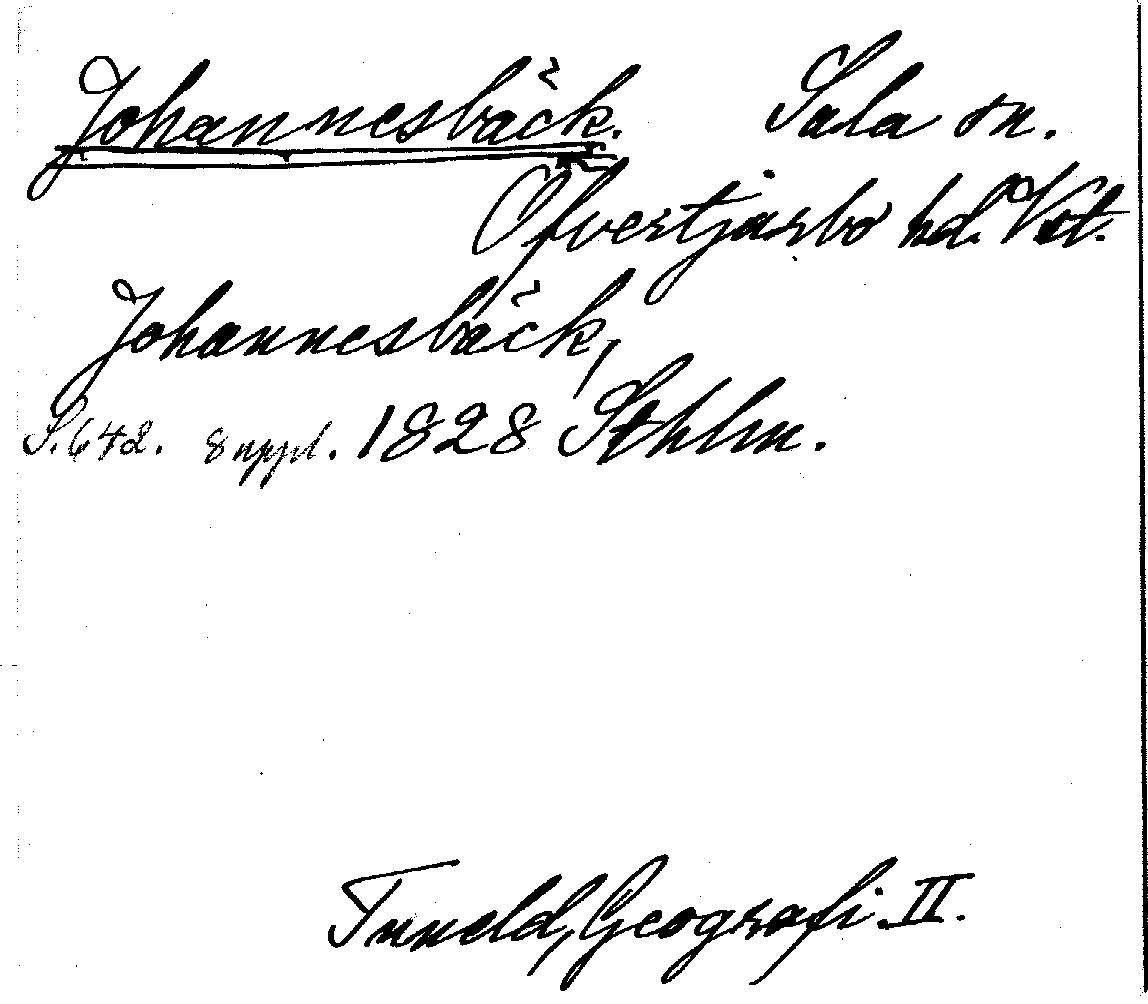 Johannesbäck. Sala sn.
Öfvertjurbo hd. Vstm.
Johannesbäck,
S. 642. 8 uppl. 1828 Sthlm.
Tuneld, Geografi. II.